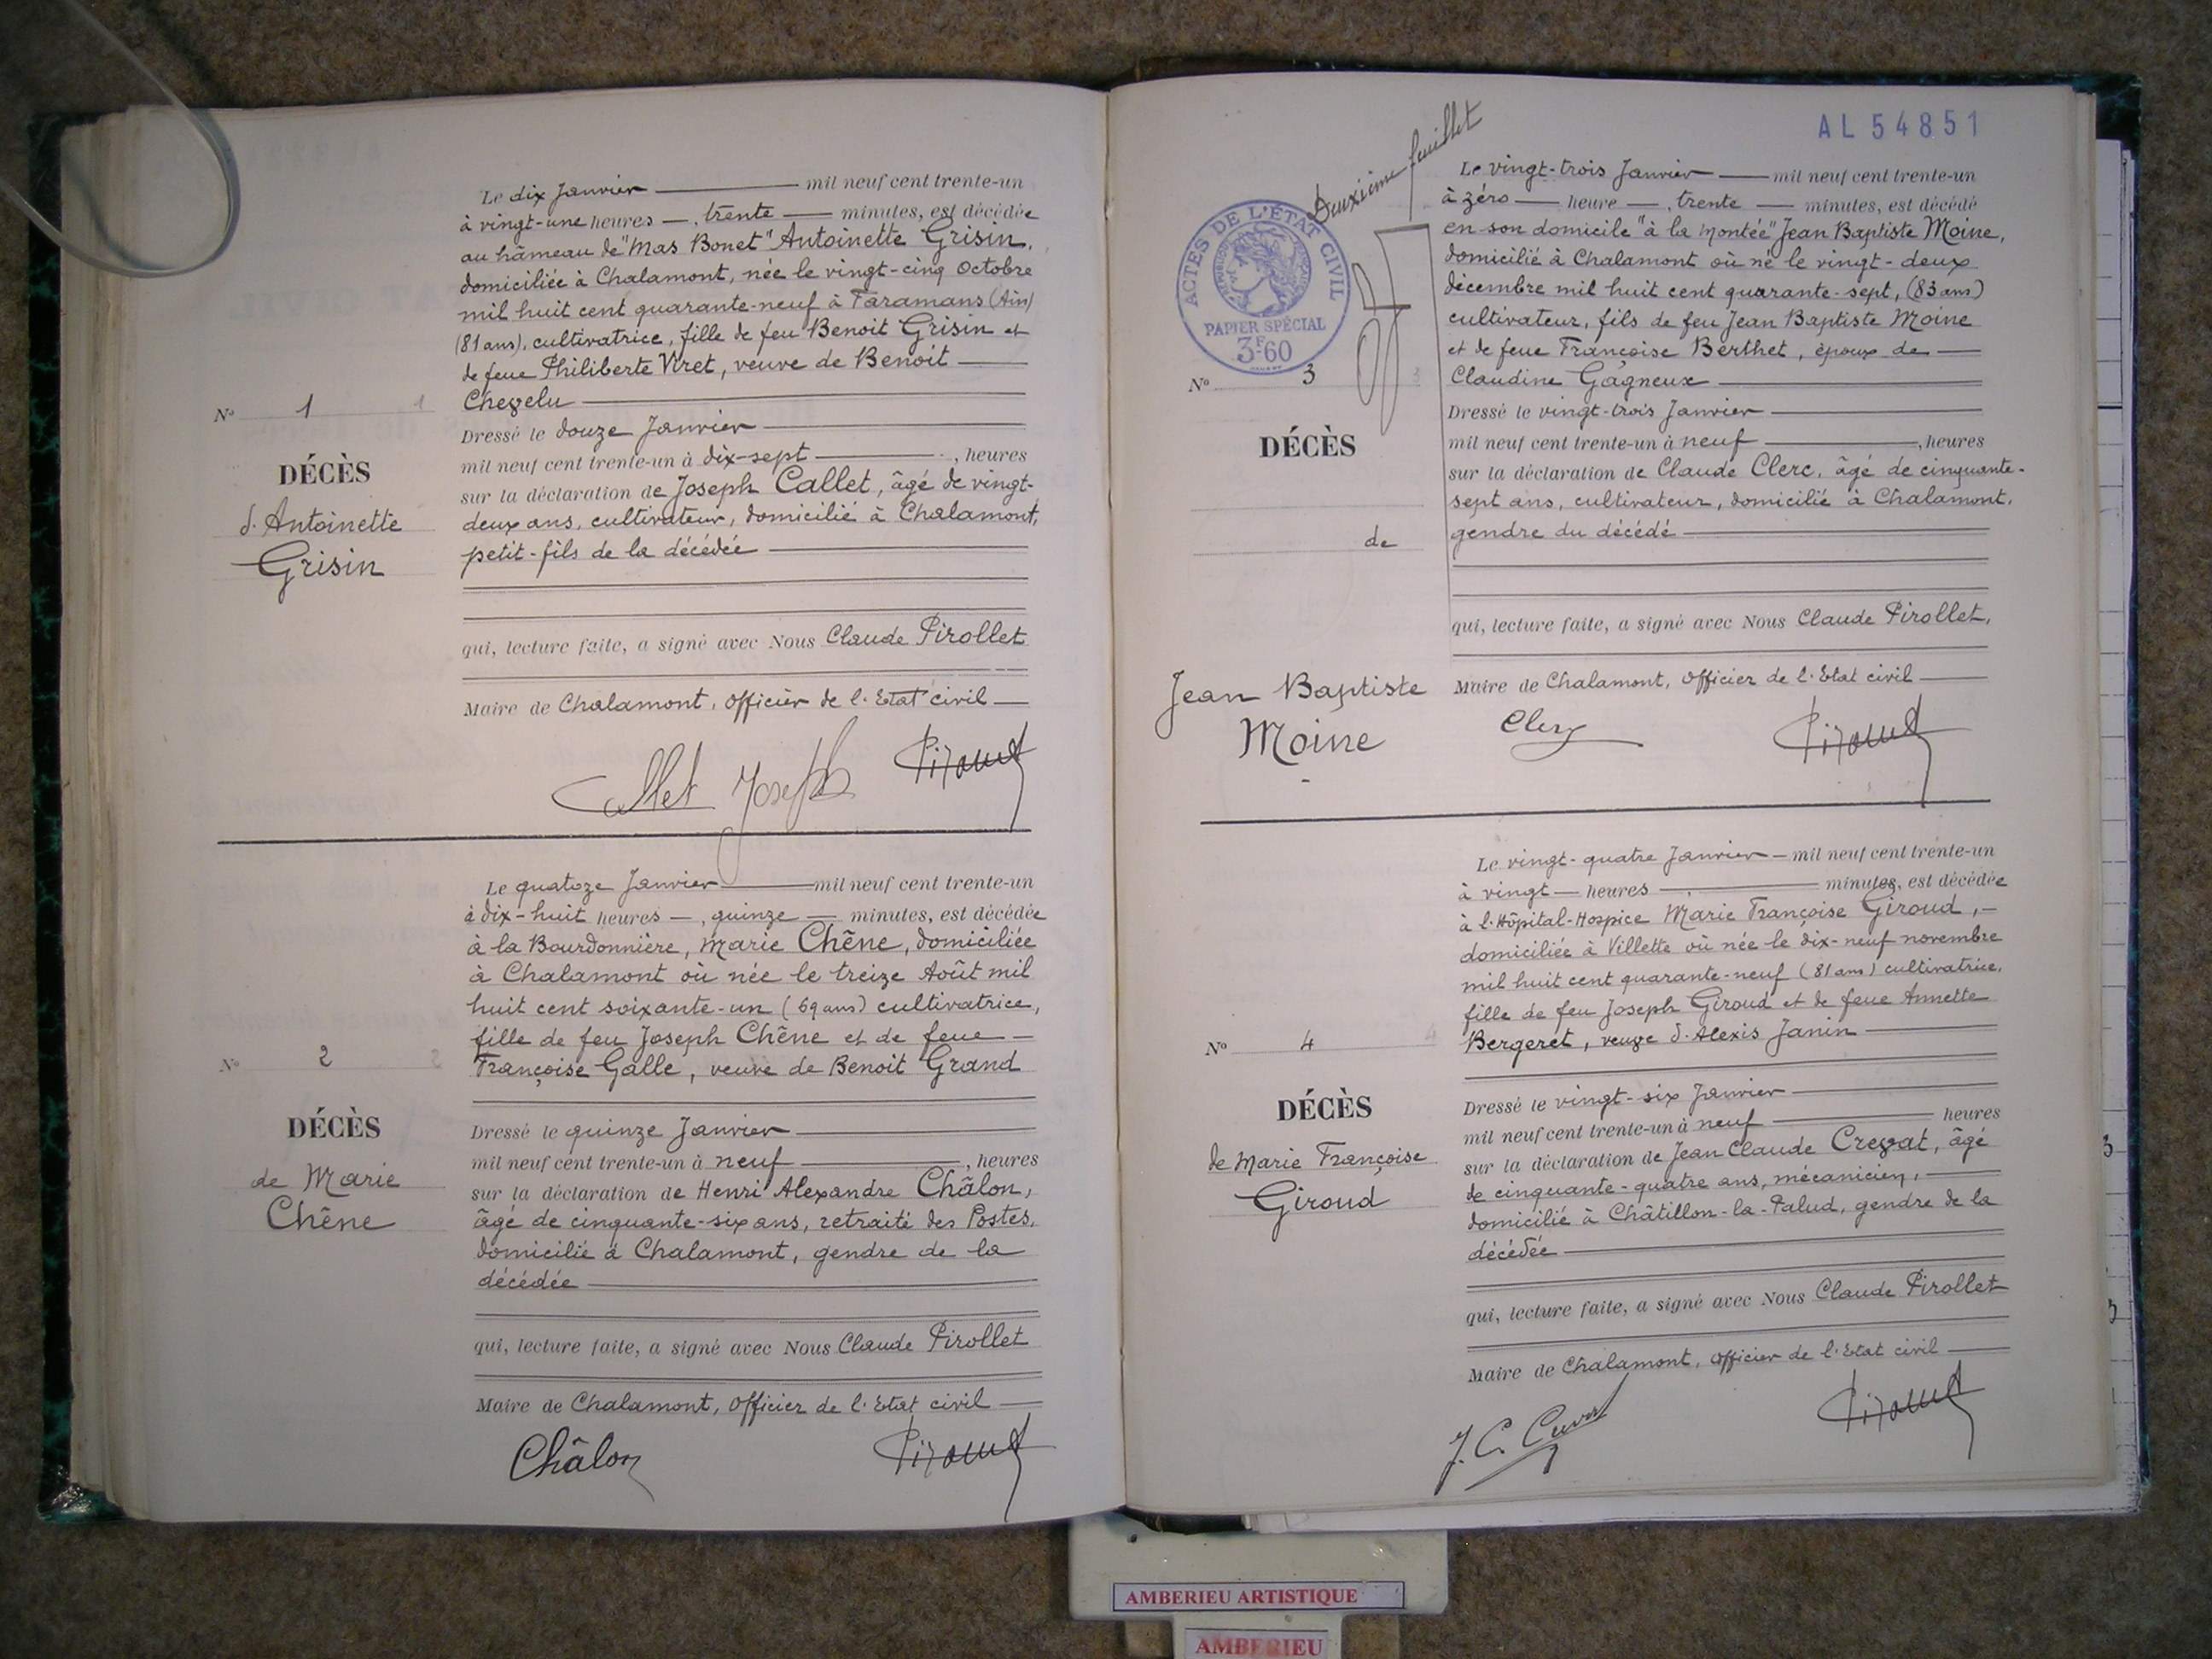 Le dix Janvier mil neuf cent trente-un
à vingt-une heures, trente minutes, est décédée
au hâmeau de "Mas Bonet" Antoinette Grisin,
domiciliée à Chalamont, née le vingt-cinq Octobre
mil huit cent quarante-neuf à Faramans (Ain)
(81 ans), cultivatrice, fille de feu Benoit Grisin et
de feue Philiberte Viret, veuve de Benoit
Chevelu
N° 1
Dressé le douze Janvier
mil neuf cent trente-un à dix-sept, heures
DÉCÈS
sur la déclaration de Joseph Callet, âgé de vingt-
d'Antoinette
deux ans, cultivateur, domicilié à Chalamont,
Grisin
petit-fils de la décédée
qui, lecture faite, a signé avec Nous Claude Pirollet
Maire de Chalamont, Officier de l'Etat civil
Callet Joseph Pirollet
Le quatoze Janvier mil neuf cent trente-un
à dix-huit heures, quinze minutes, est décédée
à la Bourdonnière, Marie Chêne, domiciliée
à Chalamont où née le treize Août mil
huit cent soixante-un (69 ans) cultivatrice,
fille de feu Joseph Chêne et de feue
N° 2
Françoise Galle, veuve de Benoit Grand
DÉCÈS
Dressé le quinze Janvier
mil neuf cent trente-un à neuf, heures
de Marie
sur la déclaration de Henri Alexandre Châlon,
Chêne
âgé de cinquante-six ans, retraité des Postes,
domicilié à Chalamont, gendre de la
décédée
qui, lecture faite, a signé avec Nous Claude Pirollet
Maire de Chalamont, Officier de l'Etat civil
Châlon Pirollet
AL 54851
Deuxième feuillet
ACTES DE L'ÉTAT CIVIL
PAPIER SPÉCIAL
3F60
Le vingt-trois Janvier mil neuf cent trente-un
à zéro heure, trente minutes, est décédé
en son domicile "à la Montée" Jean Baptiste Moine,
domicilié à Chalamont où né le vingt-deux
décembre mil huit cent quarante-sept, (83 ans)
cultivateur, fils de feu Jean Baptiste Moine
et de feue Françoise Berthet, époux de
N° 3
Claudine Gagneux
Dressé le vingt-trois Janvier
DÉCÈS
mil neuf cent trente-un à neuf, heures
sur la déclaration de Claude Clerc, âgé de cinquante-
sept ans, cultivateur, domicilié à Chalamont,
de
gendre du décédé
qui, lecture faite, a signé avec Nous Claude Pirollet,
Jean Baptiste
Maire de Chalamont, Officier de l'Etat civil
Moine
Clerc Pirollet
Le vingt-quatre Janvier mil neuf cent trente-un
à vingt heures, minutes, est décédée
à l'Hôpital-Hospice Marie Françoise Giroud,
domiciliée à Villette où née le dix-neuf novembre
mil huit cent quarante-neuf (81 ans) cultivatrice,
fille de feu Joseph Giroud et de feue Annette
N° 4
Bergeret, veuve d'Alexis Janin
DÉCÈS
Dressé le vingt-six Janvier
mil neuf cent trente-un à neuf heures
de Marie Françoise
sur la déclaration de Jean Claude Crevat, âgé
Giroud
de cinquante-quatre ans, mécanicien,
domicilié à Châtillon-la-Palud, gendre de la
décédée
qui, lecture faite, a signé avec Nous Claude Pirollet
Maire de Chalamont, Officier de l'Etat civil
J. C. Crevat Pirollet
AMBERIEU ARTISTIQUE
AMBERIEU